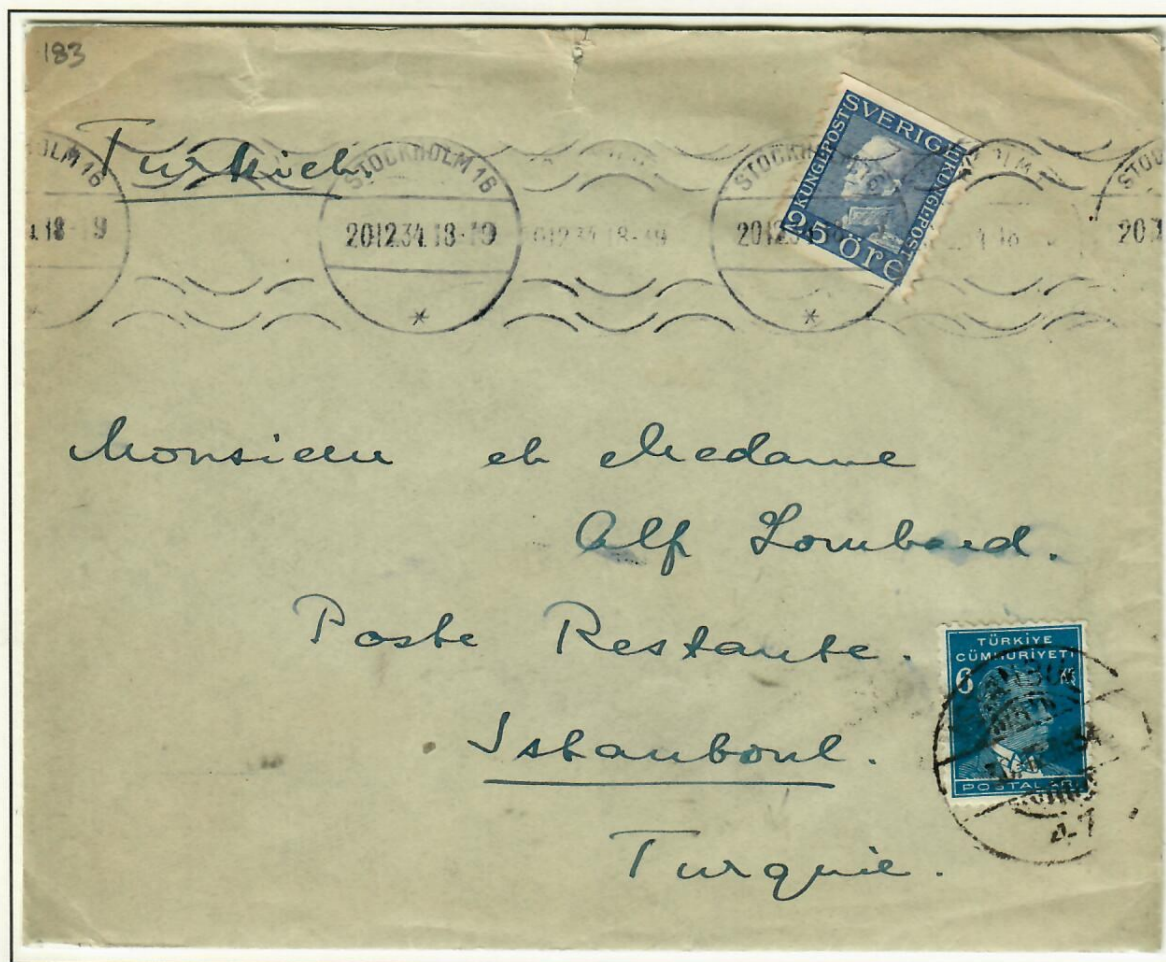 183
Turkiet.
STOCKHOLM 16
2012.34.18-19
SVERIGE
KUNGL·POST
KUNGL·POST
25 ÖRE
Monsieur et Madame
Alf Lombard.
Poste Restante.
Istanboul.
Turquie.
TÜRKİYE
CÜMHURİYETİ
6
POSTALARI